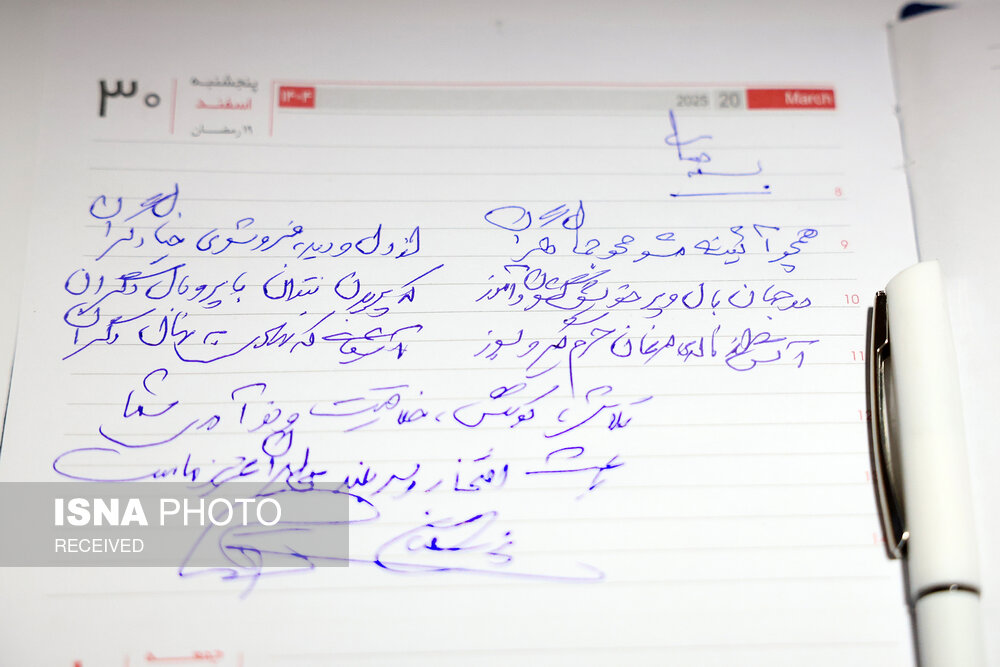 ۳۰
پنجشنبه
اسفند
۱۹ رمضان
۱۴۰۳
2025 20 March
بسمه تعالی
8
همچو آئینه مشو محو جمال دگران از دل و دیده فروشوی خیال دگران
9
در جهان بال و پر خویش گشودن آموز که پریدن نتوان با پر و بال دگران
10
آتش از ناله‌ی مرغان حرم گیر و بسوز آشیانی که نهادی به نهال دگران
11
تلاش، کوشش، خلاقیت و نوآوری شما
12
باعث افتخار و سربلندی ایران عزیز ماست
ISNA PHOTO
RECEIVED
جمعه